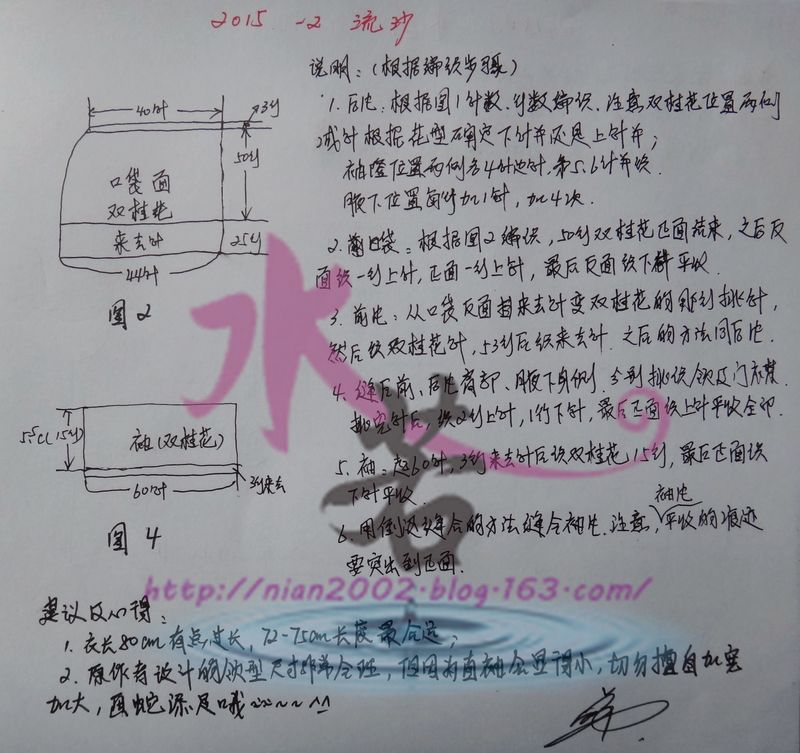 2015 -2 流沙
说明：(根据编织步骤)
1. 后片：根据图1针数、行数编织、注意双桂花位置两侧
减针根据花型确定下针并还是上针并；
袖窿位置两侧各4针边针，第5.6针并收.
腋下位置每行加1针，加4次.
2. 口袋：根据图2编织，50行双桂花正面结束，之后反
面织一行上针，正面一行上针，最后反面织下针平收.
3. 前片：从口袋反面挡来去针变双桂花的那行挑针，
然后织双桂花针，53行后织来去针. 之后的方法同后片.
4. 缝合前、后片肩部、腋下身侧. 分别挑织领及门衣襟.
挑完针后，织2行上针，1行下针，最后正面织上针平收全部.
5. 袖：起60针，3行来去针后织双桂花15行，最后正面织
下针平收.
6. 用倒退缝合的方法缝合袖片. 注意，袖片平收的痕迹
要突出到正面.
40针
3行
50行
口袋面
双桂花
来去针
25行
44针
图2
5.5C(15行)
袖(双桂花)
3行来去
60针
图4
http://nian2002.blog.163.com/
水若
建议及心得：
1. 衣长80cm有点过长，72-75cm长度最合适；
2. 原作者设计的领型尺寸非常合理，但因为直袖会显得小，切勿擅自加宽
加大，画蛇添足哦~~~~ ^^